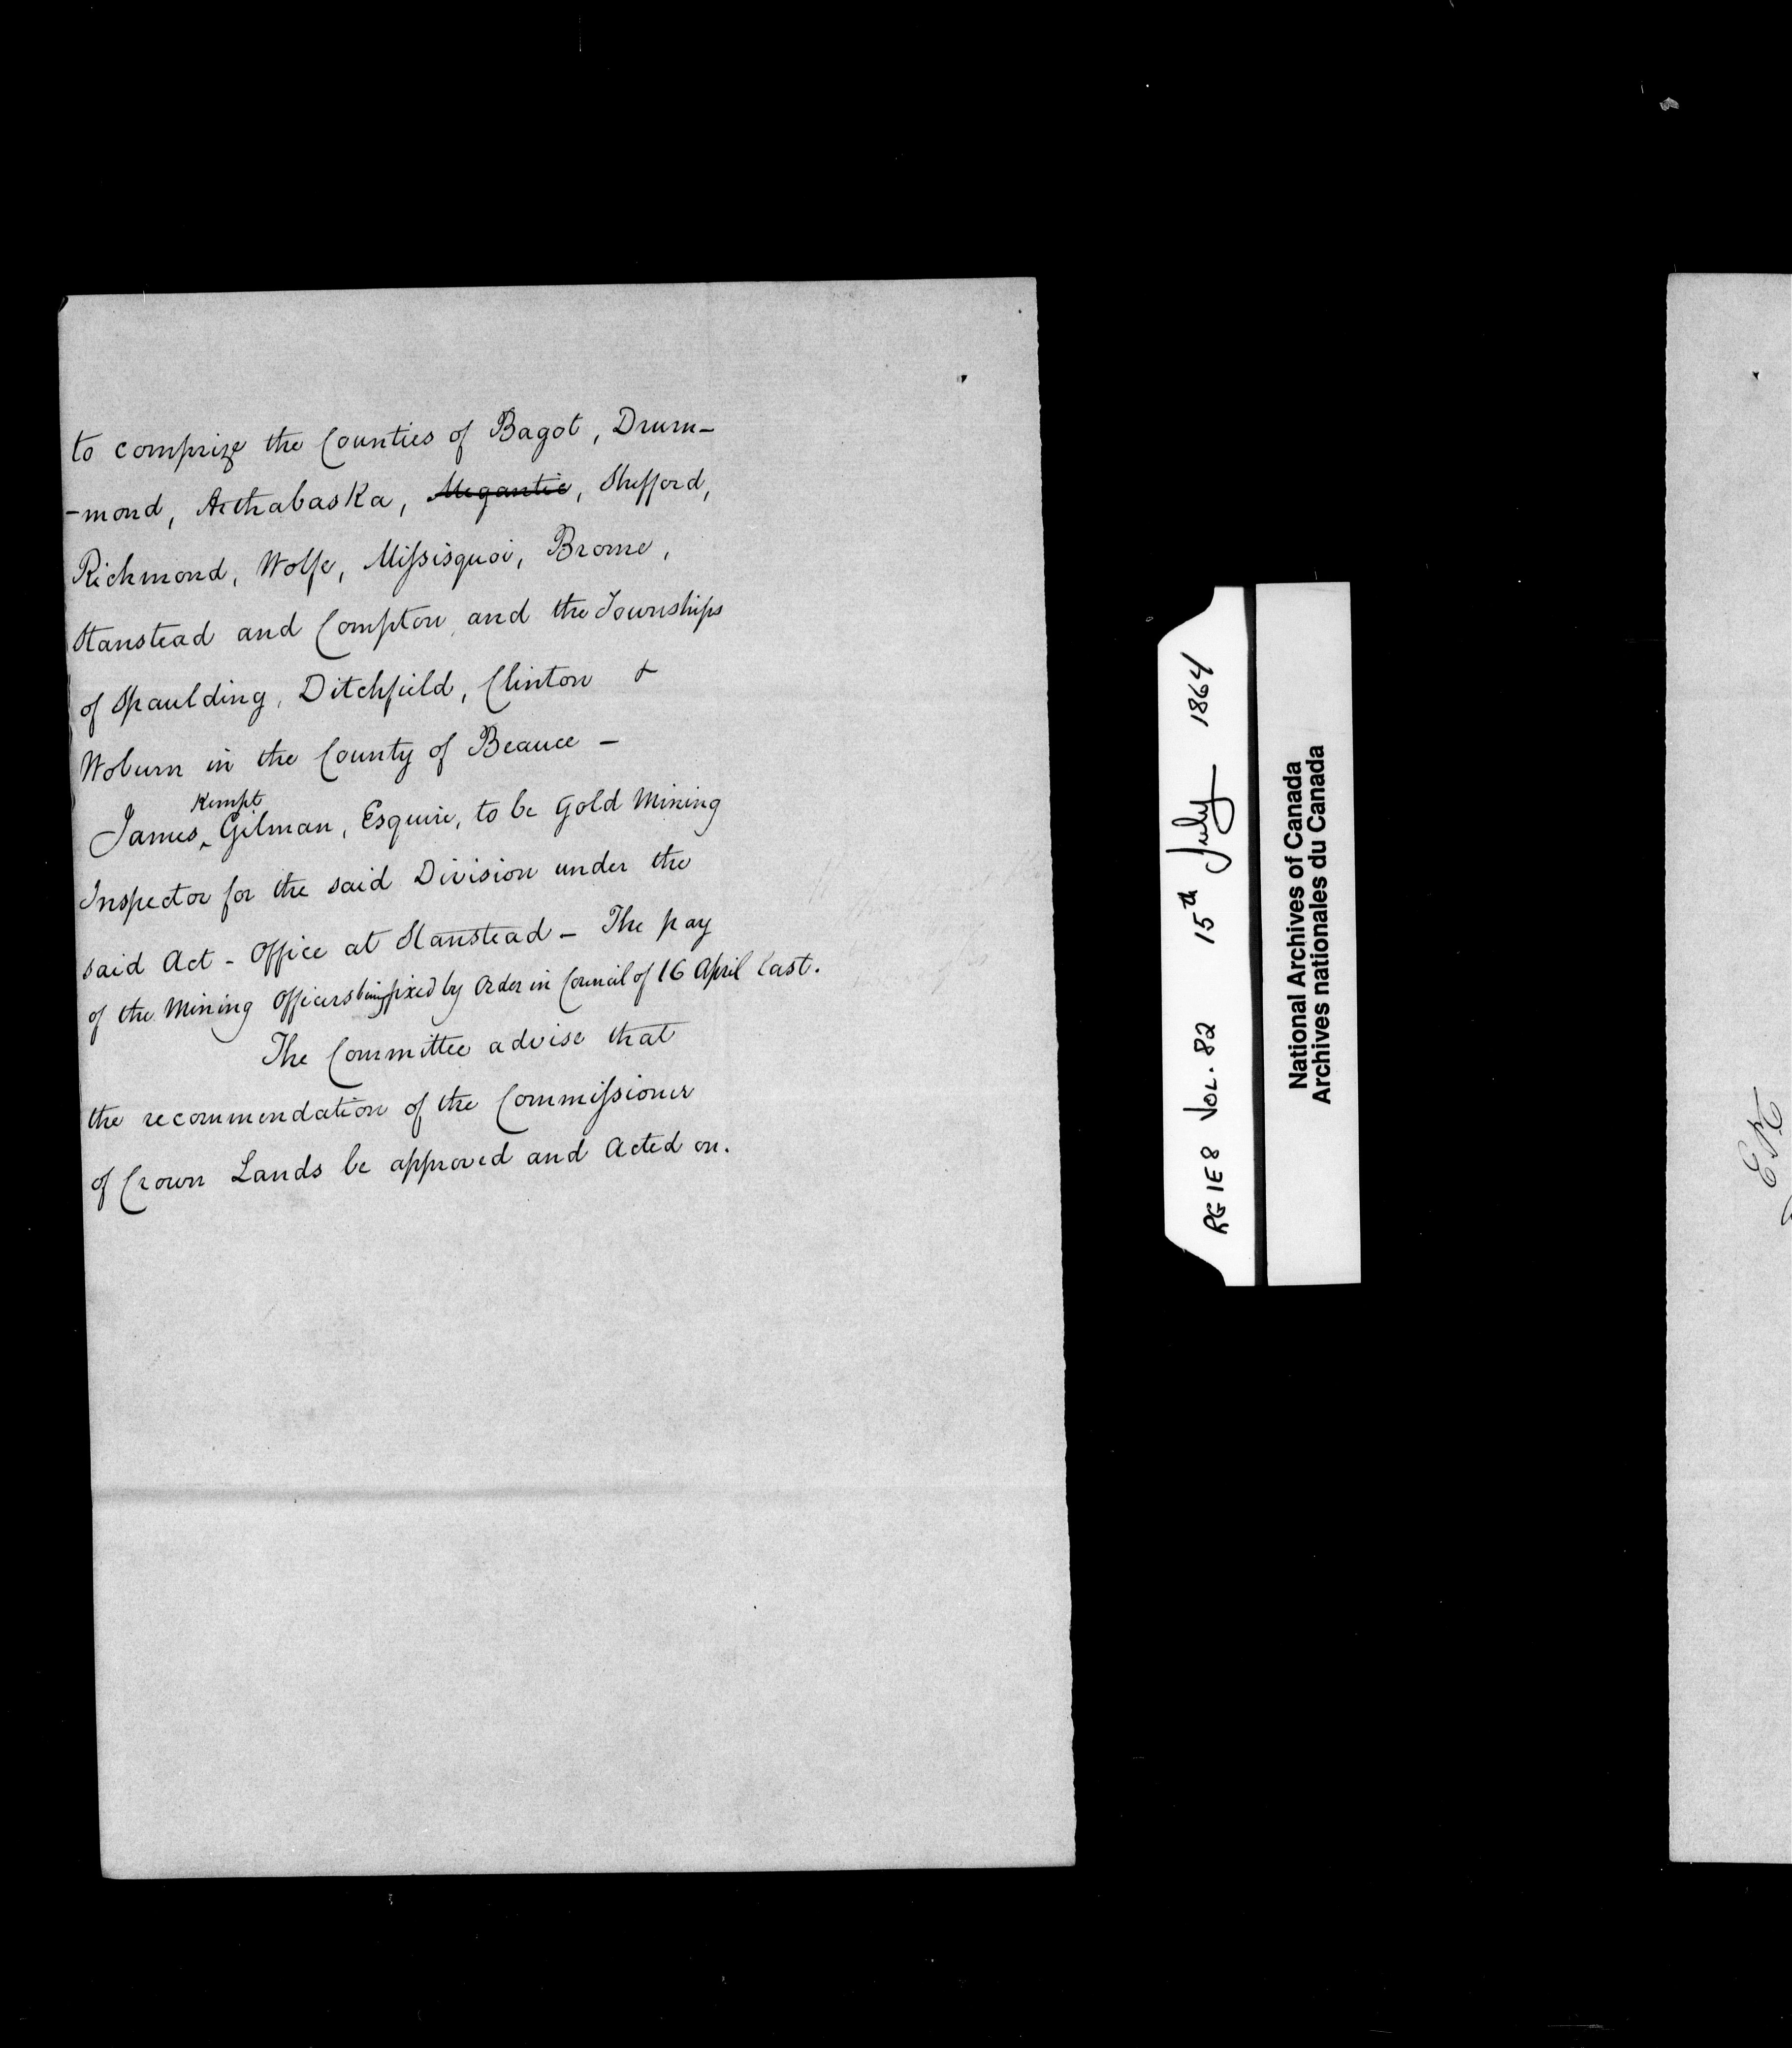 to comprize the Counties of Bagot, Drum-
-mond, Arthabaska, Megantic, Shefford,
Richmond, Wolfe, Missisquoi, Brome,
Stanstead and Compton, and the Townships
of Spaulding, Ditchfield, Clinton &
Woburn in the County of Beauce -
James Kempt Gilman, Esquire, to be Gold Mining
Inspector for the said Division under the
said Act - Office at Stanstead - The pay
of the Mining Officers being fixed by Order in Council of 16 April last.
The Committee advise that
the recommendation of the Commissioner
of Crown Lands be approved and acted on.
RG 1E8 VOL. 82 15th July 1864
National Archives of Canada
Archives nationales du Canada